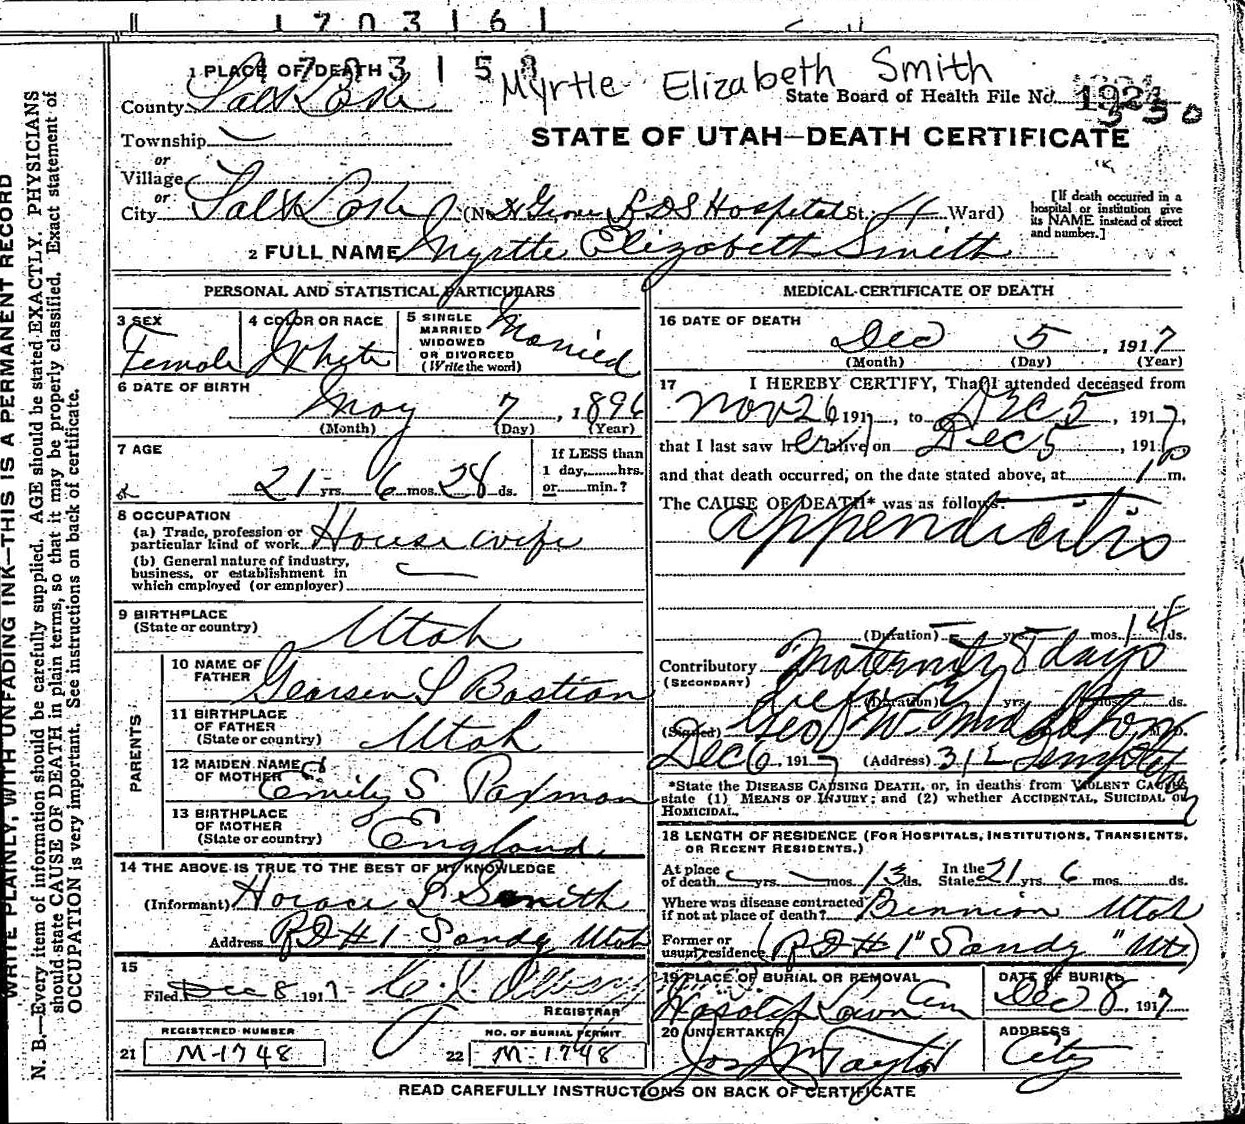 1 7 0 3 1 6 1
1 PLACE OF DEATH 7 0 3 1 5 8
Myrtle Elizabeth Smith
County Salt Lake
State Board of Health File No. 1924
350
STATE OF UTAH—DEATH CERTIFICATE
Township
or
Village
or
City Salt Lake (No. LDS Hospital St. 4 Ward)
[If death occurred in a hospital or institution give its NAME instead of street and number.]
2 FULL NAME Myrtle Elizabeth Smith
PERSONAL AND STATISTICAL PARTICULARS
3 SEX Female
4 COLOR OR RACE White
5 SINGLE MARRIED WIDOWED OR DIVORCED (Write the word) Married
6 DATE OF BIRTH
May 7, 1896
(Month) (Day) (Year)
7 AGE
21 yrs. 6 mos. 28 ds.
If LESS than 1 day,......hrs. or......min.?
8 OCCUPATION
(a) Trade, profession or particular kind of work House wife
(b) General nature of industry, business, or establishment in which employed (or employer)
9 BIRTHPLACE (State or country) Utah
PARENTS
10 NAME OF FATHER S Bastian
11 BIRTHPLACE OF FATHER (State or country) Utah
12 MAIDEN NAME OF MOTHER Emily S. Paxman
13 BIRTHPLACE OF MOTHER (State or country) England
14 THE ABOVE IS TRUE TO THE BEST OF MY KNOWLEDGE
(Informant) Horace L Smith
Address RD #1 Sandy Utah
15
Filed Dec 8 1917 C. J.
REGISTRAR
REGISTERED NUMBER NO. OF BURIAL PERMIT
21 M-1748 22 M-1748
MEDICAL CERTIFICATE OF DEATH
16 DATE OF DEATH
Dec 5, 1917
(Month) (Day) (Year)
17 I HEREBY CERTIFY, That I attended deceased from
Nov 26 1917, to Dec 5, 1917,
that I last saw her alive on Dec 5, 191
and that death occurred, on the date stated above, at 1 m.
The CAUSE OF DEATH* was as follows:
appendicitis
(Duration) yrs. mos. 14 ds.
Contributory (SECONDARY) Maternity 8 days
(Duration) yrs. mos. ds.
(Signed) Geo W. Middleton M.D.
Dec 6, 1917 (Address)
*State the DISEASE CAUSING DEATH, or, in deaths from VIOLENT CAUSES, state (1) MEANS OF INJURY; and (2) whether ACCIDENTAL, SUICIDAL or HOMICIDAL.
18 LENGTH OF RESIDENCE (FOR HOSPITALS, INSTITUTIONS, TRANSIENTS, OR RECENT RESIDENTS.)
At place of death yrs. mos. 13 ds. In the State 21 yrs. 6 mos. ds.
Where was disease contracted if not at place of death? Bennion Utah
Former or usual residence (RD #1" Sandy "Ut)
19 PLACE OF BURIAL OR REMOVAL Wasatch Lawn Cem
DATE OF BURIAL Dec 8, 1917
20 UNDERTAKER Jos Wm Taylor
ADDRESS City
READ CAREFULLY INSTRUCTIONS ON BACK OF CERTIFICATE
WRITE PLAINLY, WITH UNFADING INK—THIS IS A PERMANENT RECORD
N. B.—Every item of information should be carefully supplied. AGE should be stated EXACTLY. PHYSICIANS
should state CAUSE OF DEATH in plain terms, so that it may be properly classified. Exact statement of
OCCUPATION is very important. See instructions on back of certificate.